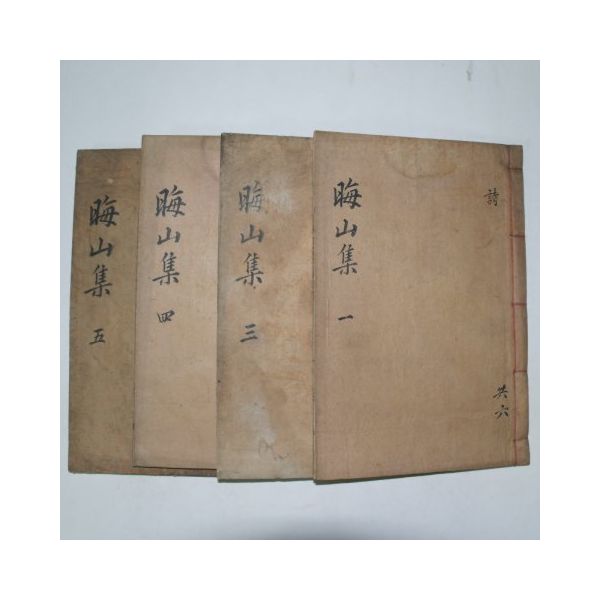 詩
共六
晦山集 一
晦山集 三
晦山集 四
晦山集 五